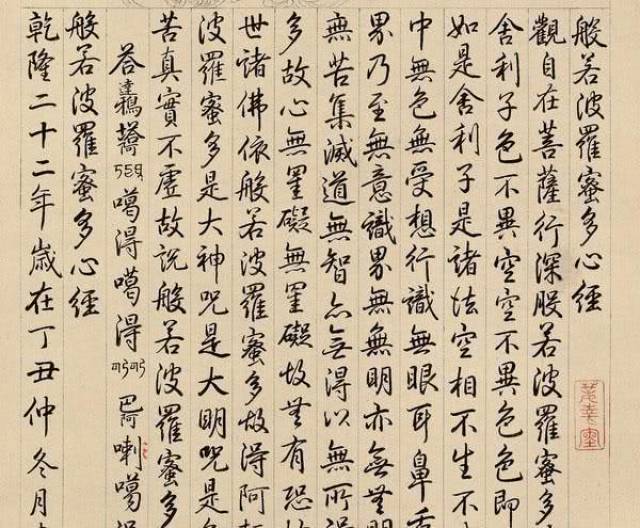 般若波羅蜜多心經
觀自在菩薩行深般若波羅蜜多
舍利子色不異空空不異色色即
如是舍利子是諸法空相不生不
中無色無受想行識無眼耳鼻
界乃至無意識界無無明亦無無明
無苦集滅道無智亦無得以無所得
多故心無罣礙無罣礙故無有恐
世諸佛依般若波羅蜜多故得阿
波羅蜜多是大神呪是大明呪是
苦真實不虛故說般若波羅蜜多
荅噶得噶得巴阿喇噶
般若波羅蜜多心經
乾隆二十二年歲在丁丑仲冬月